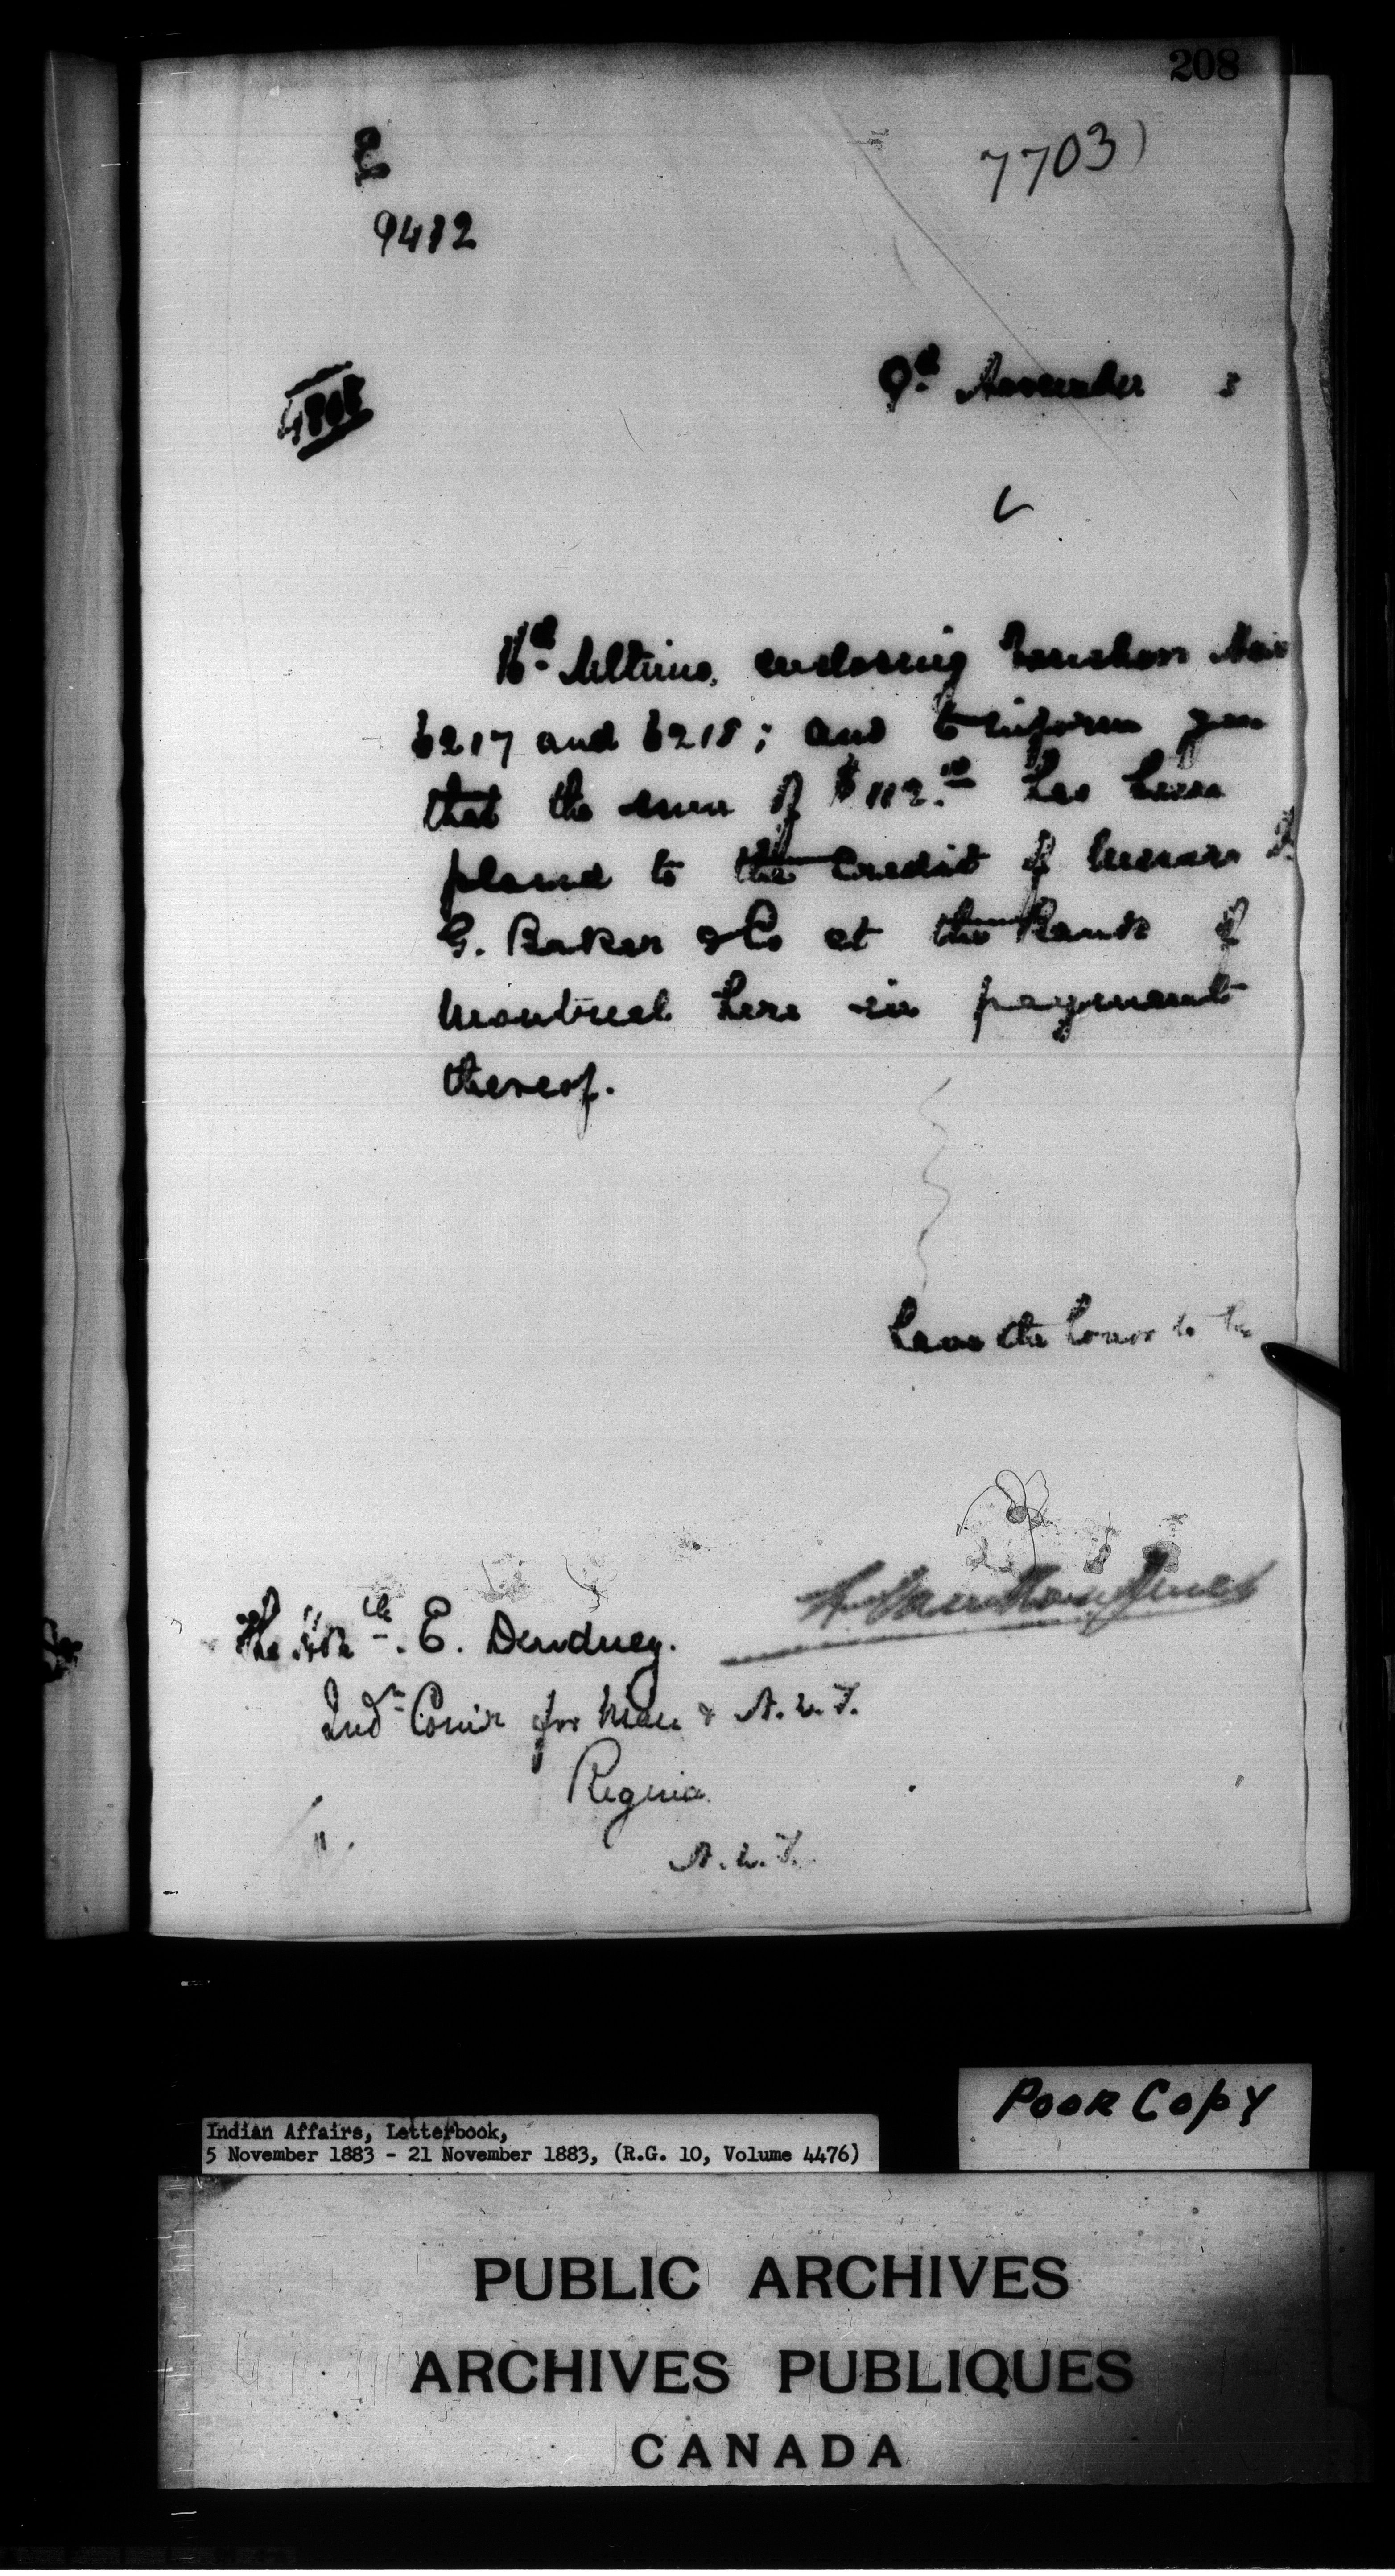 208
7703
9412
4808
9th November 3
16th Ultimo, enclosing Vouchers Nos
6217 and 6218; and to inform you
that the sum of $112. has been
placed to the Credit of Messrs I.
G. Baker & Co at the Bank of
Montreal here in payment
thereof.
have the honor to be
The Honble. E. Dewdney.
Indn Comr for Man & N.W.T.
Regina
N.W.T.
Poor Copy
Indian Affairs, Letterbook,
5 November 1883 - 21 November 1883, (R.G. 10, Volume 4476)
PUBLIC ARCHIVES
ARCHIVES PUBLIQUES
CANADA